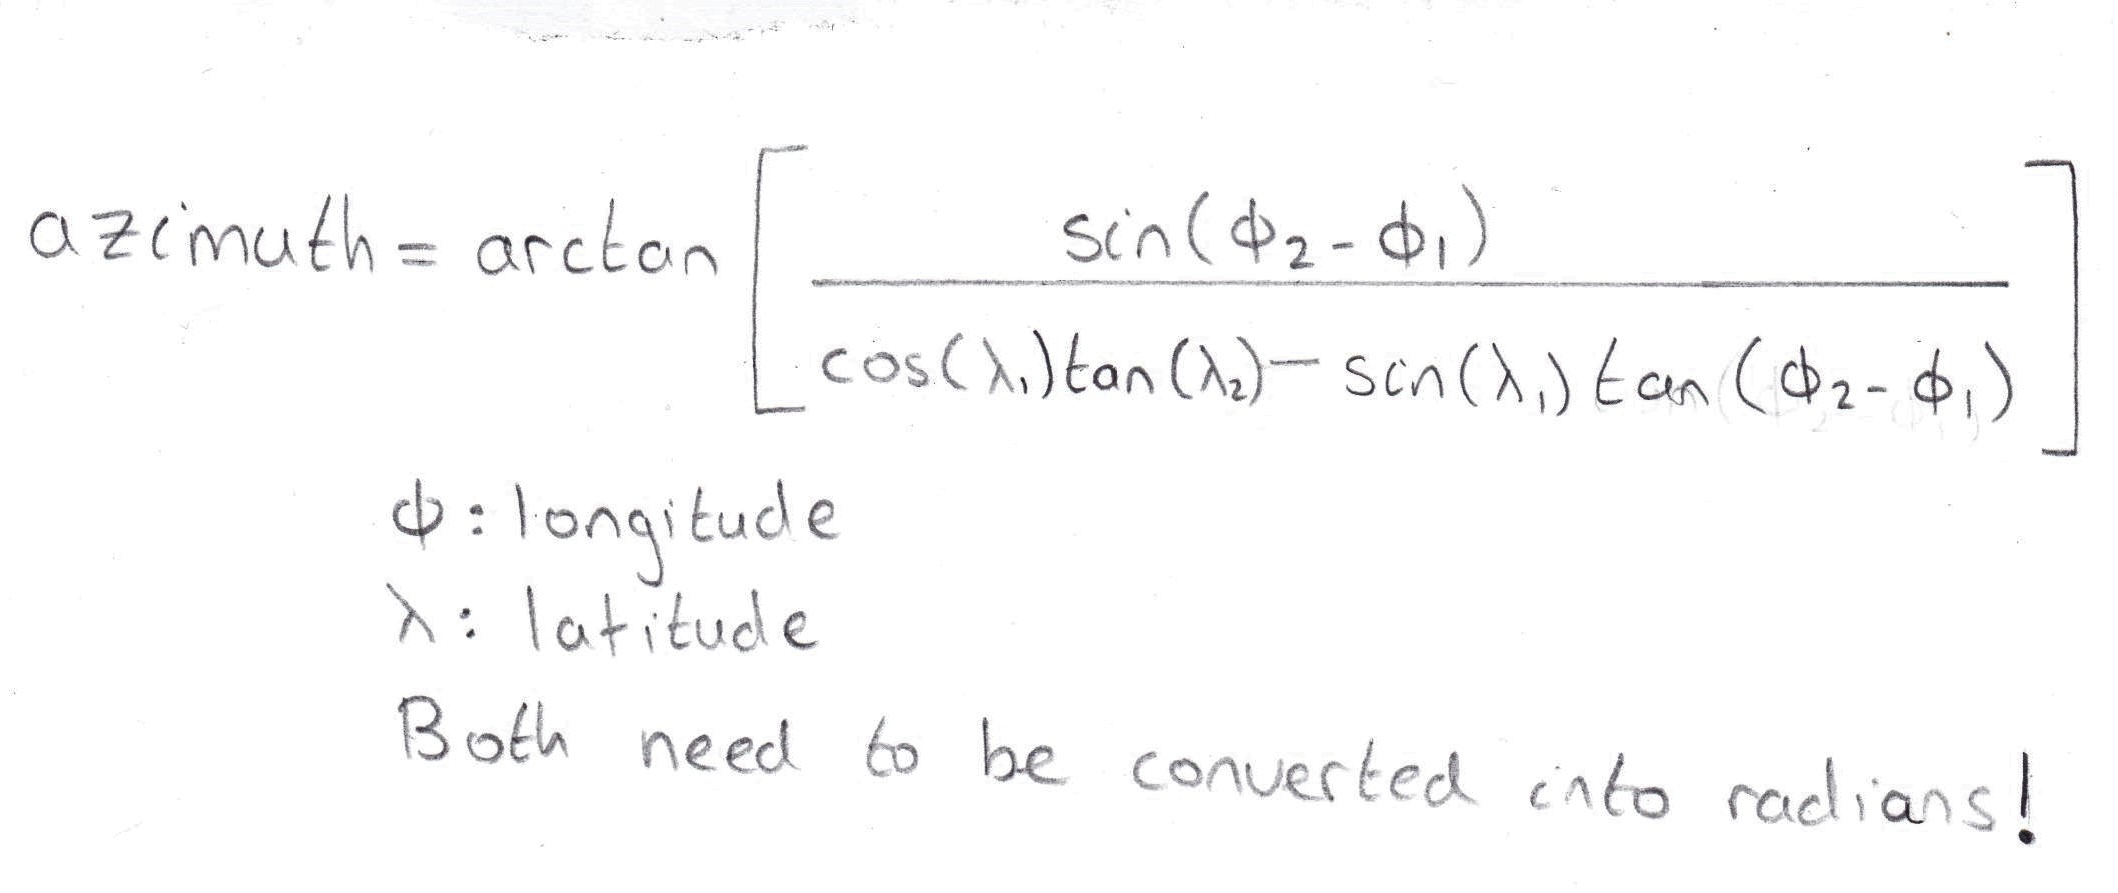 azimuth = arctan [ sin(ϕ₂ - ϕ₁) / cos(λ₁)tan(λ₂) - sin(λ₁)tan(ϕ₂ - ϕ₁) ]
ϕ: longitude
λ: latitude
Both need to be converted into radians!